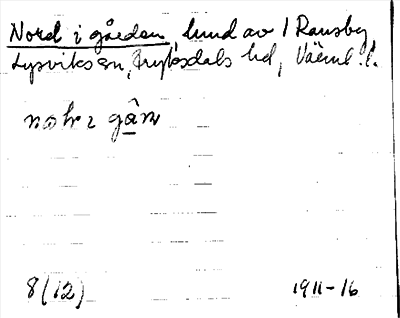 Nord i gården, lund av 1 Ransby,
Lysviks sn, Fryksdals hd, Värml. l.
8(12) 1911-16